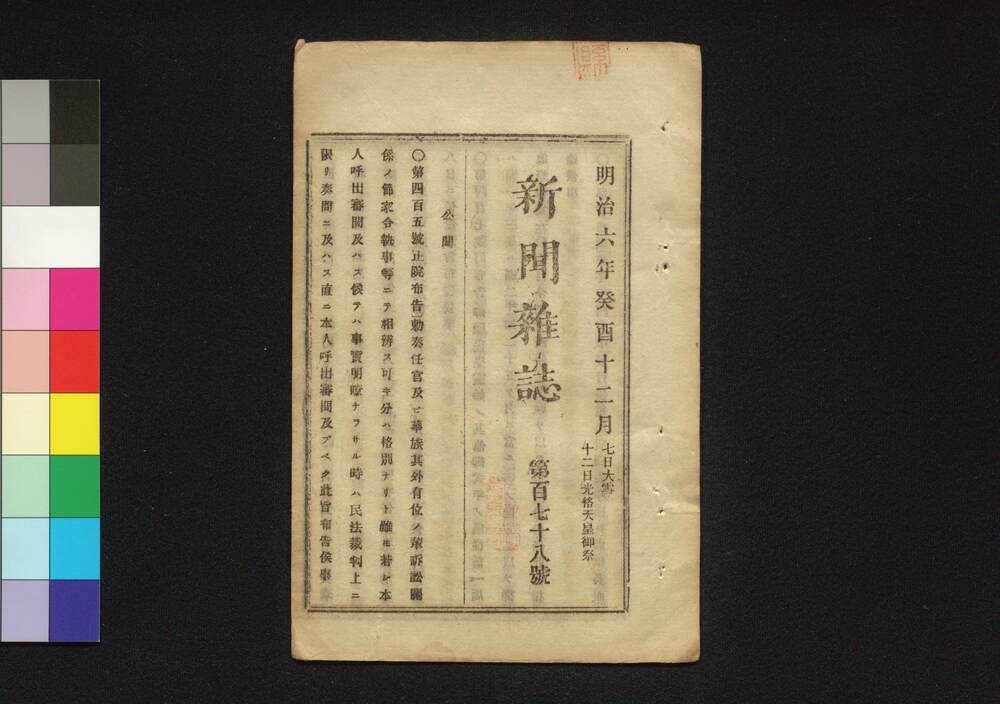 明治六年癸酉十二月
七日大雪
十二日光格天皇御祭
新聞雜誌
第百七十八號
公聞
〇第四百五號正院布告勅奏任官及ヒ華族其外有位ノ輩訴訟關
係ノ節家令執事等ニテ相辨ス可キ分ハ格別ナリト雖モ若シ本
人呼出審問及ハス候テハ事實明瞭ナラサル時ハ民法裁判上ニ
限リ奏聞ニ及ハス直ニ本人呼出審問及フヘク此旨布告候事